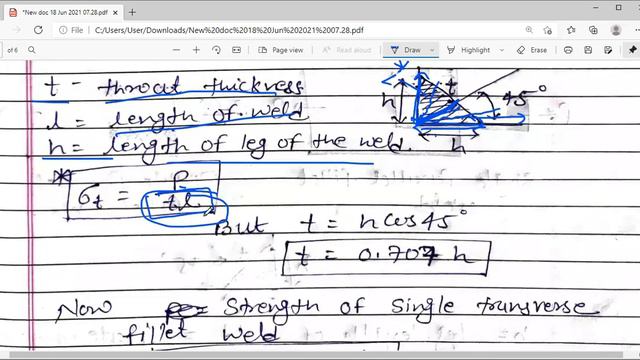 *New doc 18 Jun 2021 07.28.pdf
File
C:/Users/User/Downloads/New%20doc%2018%20Jun%202021%2007.28.pdf
of 6
Draw
Highlight
Erase
t - throat thickness
l = length of weld
h = length of leg of the weld.
t
h
45°
h
* σt = P / t.l.
But, t = h cos 45°
t = 0.707 h
Now Strength of Single transverse
fillet weld